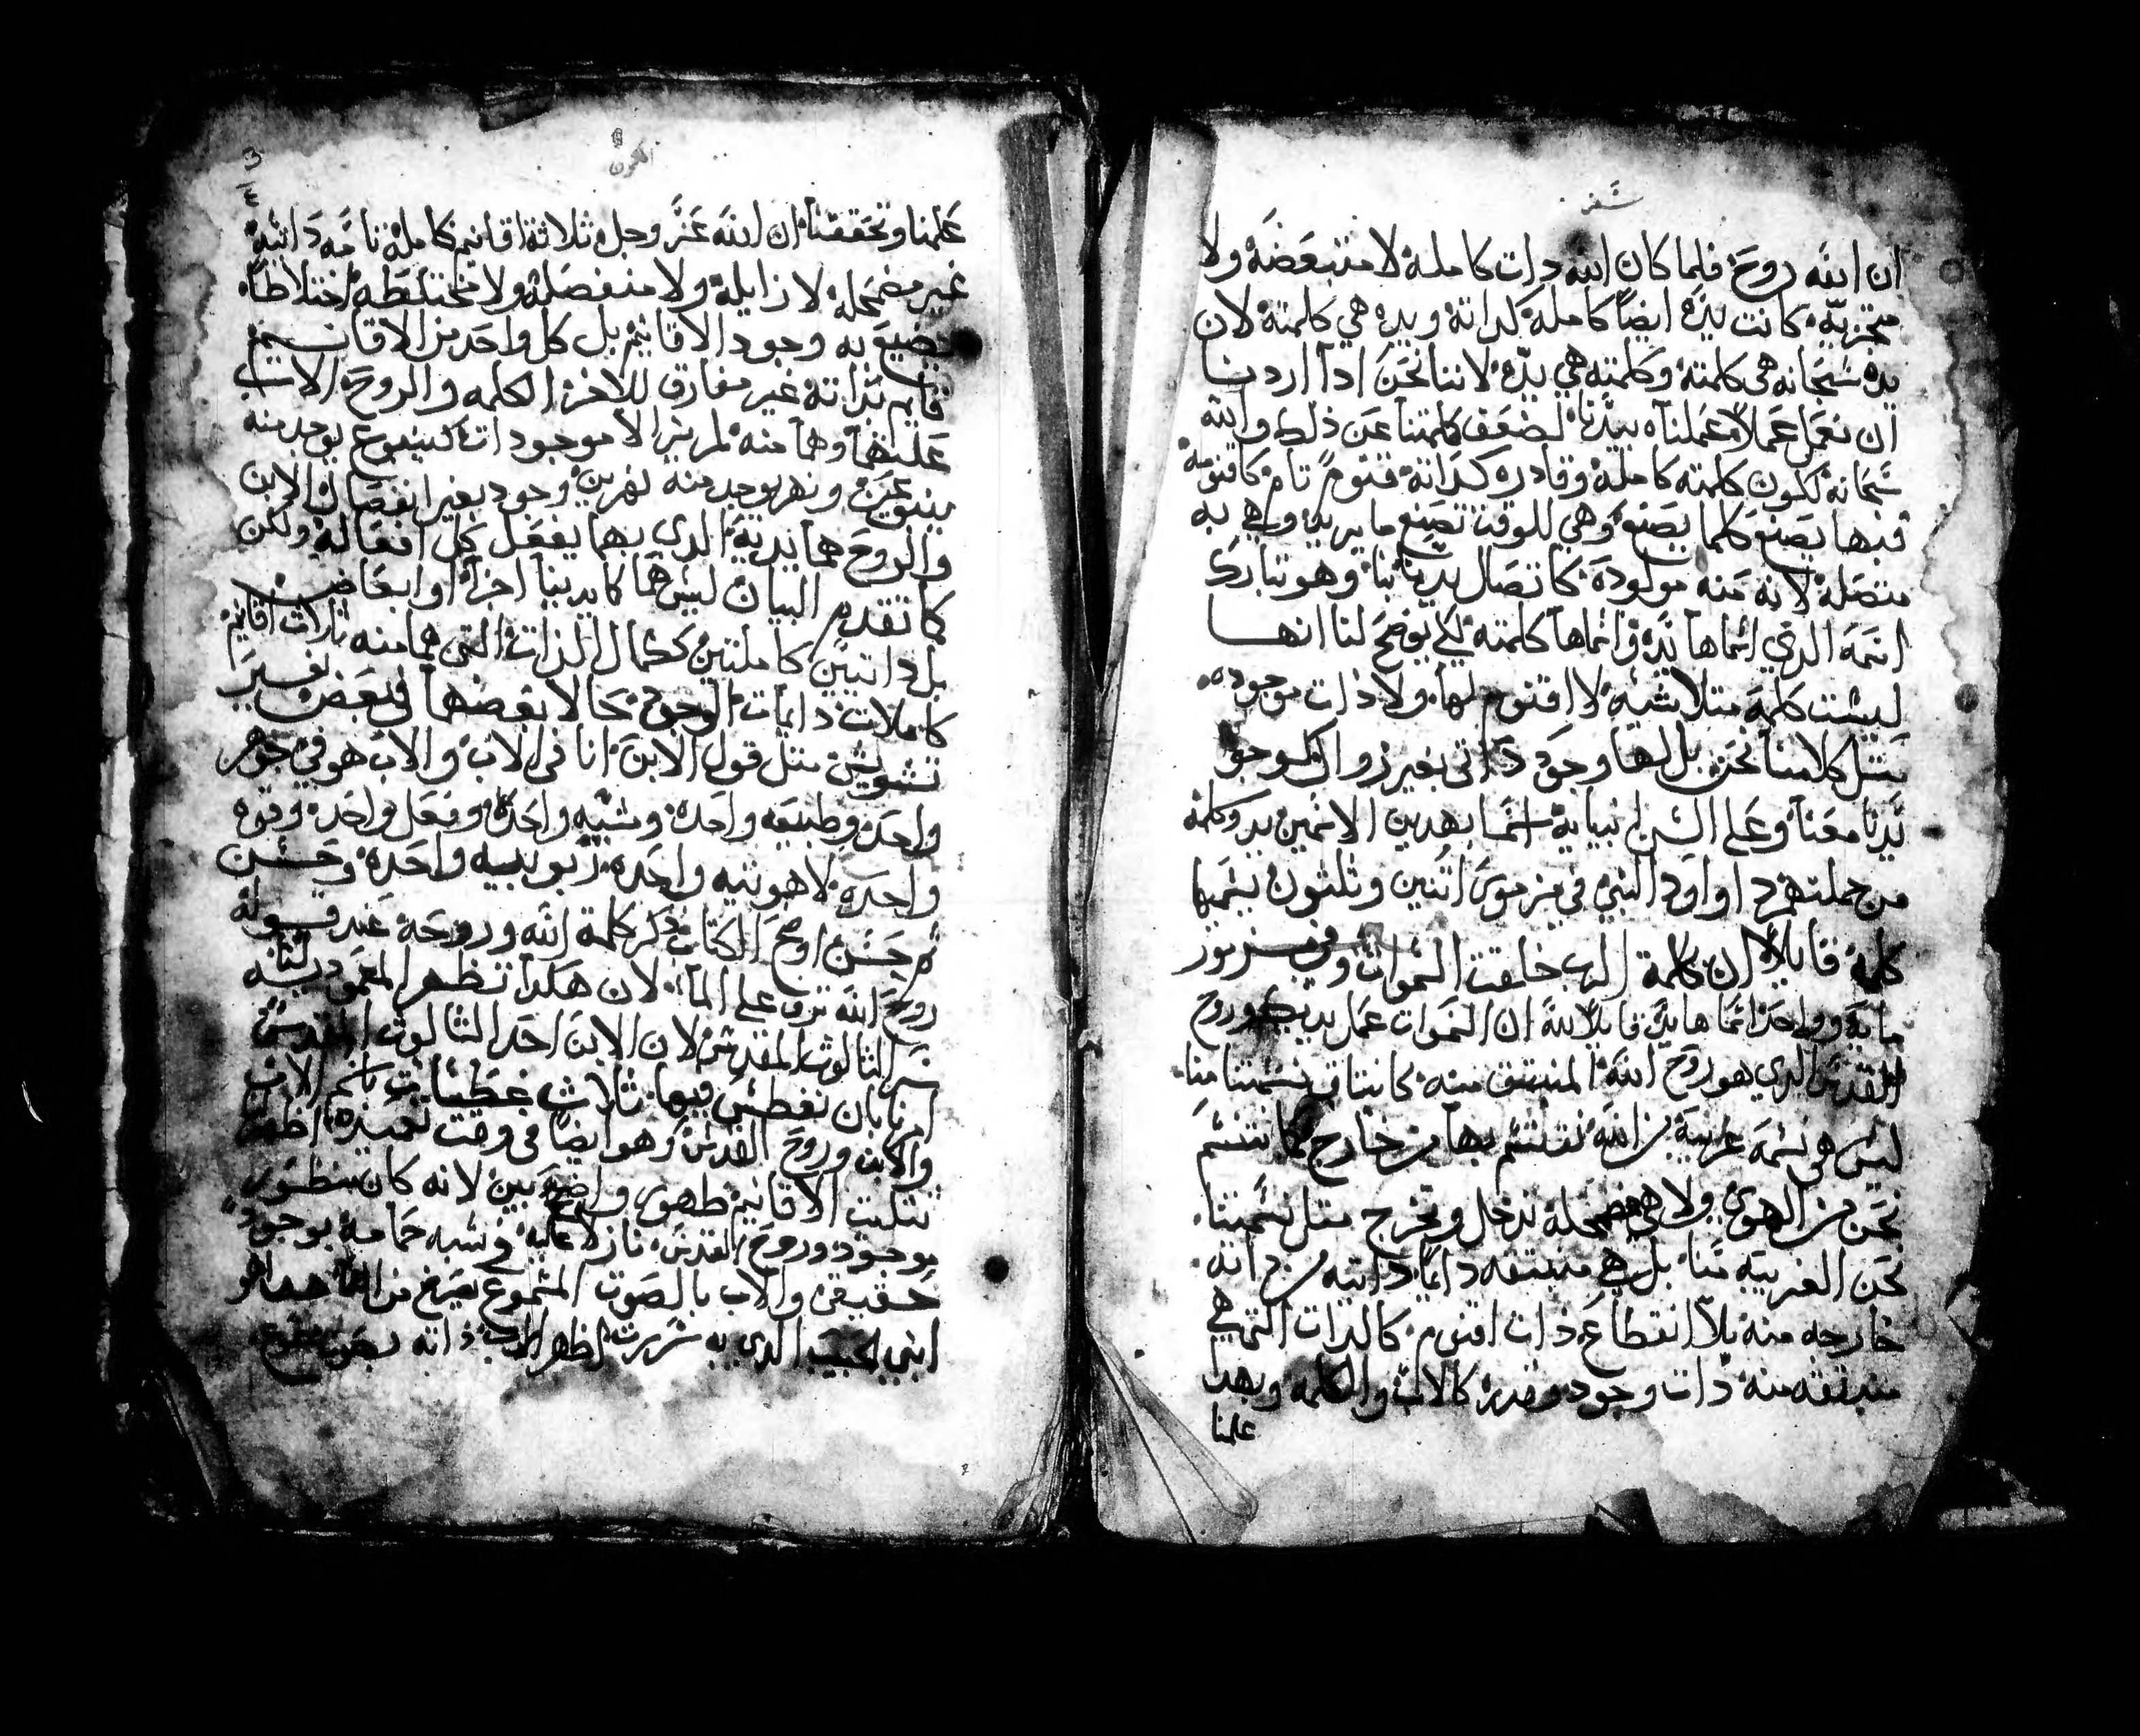 سفر
ان الله روح فلما كان الله دات كاملة لا متبعضة ولا
متجزيه كانت يده ايضا كاملة كداته ويده هي كلمته لان
يده سبحانه هي كلمته وكلمته هي يده لاننا نحن ادا اردنا
ان نعمل عملا عملناه بيدنا لضعف كلمتنا عن ذلك والله
سبحانه لكون كلمته كاملة وقادره كداته قنوم تام كاقنومة
فبها يصنع كلما يصنع وهي للوقت تصنع ما يريد وهي به
متصلة لانه منه مولودة كاتصال يدنا بنا وهو تبارك
اسمه الدي اسماها يده واسماها كلمته لكي يوضح لنا انها
ليست كلمة متلاشيه لا اقنوم لها ولا دات موجوده
متل كلامنا نحن بل لها وجود داتي بغير زوال كوجود
يدنا معنا وعلى السن انبيايه اسما بهدين الاسمين يد وكلمة
من جملتهم داوود النبي في مزمور اتنين وثلثون يسميها
كلمة قايلا ان كلمة الرب خلقت السموات وفي مزمور
مايه وواحد اسماها يد قايلا لله ان السموات عمل يديك وروح
القدس الدي هو روح الله المنبتق منه كانبتاق نسمتنا منا
ليس هي نسمة غريبة من الله نتنسم بها من خارج كما نتنسم
نحن من الهوى ولا هي مضمحلة تدخل وتخرج متل نسمتنا
نحن الغريبه منا بل هي منبتقه دايما داتيه من داته
خارجه منه بلا انقطاع دات اقنوم كالدات التي هي
منبتقه منه دات وجود وقدره كالاب والكلمه وبهدا
علمنا
الكون
3
٤
علمنا وتحققنا ان الله عز وجل ثلاثة اقانيم كاملة تامه داتيه
غير مضمحله لا زايلة ولا منفصلة ولا مختلطه اختلاطا
يضيع به وجود الاقانيم بل كل واحد من الاقانيم
قايم بداته غير مفارق للاخر الكلمه والروح الاب
علتهما وهما منه لم يزالا موجودات كينبوع يوجد منه
ينبوعين ونهر يوجد منه نهرين وجود بغير انفصال والابن
والروح هما يديه الدي بهما يفعل كل افعاله ولكن
كما تقدم البيان ليس هما كايدينا اجزا او ابعاض
بل داتين كاملتين ككمال الدات التي هما منه ثلاث اقانيم
كاملات دايمات الوجود بحالا بعضهما في بعض بغير
تشويش متل قول الابن انا في الاب والاب هو في جوهر
واحد وطبيعه واحده ومشيه واحده وفعل واحد وقوه
واحده لاهوتيه واحده ربوبيه واحده وحسن
حسن اوضح الكتاب دكر كلمة الله وروحه عند قوله
روح الله ترف على الما لان هكدا تظهر المعموديه لنا
سر التالوت المقدس لان الابن احد التالوت المقدس
امرنا بان نغطس فيها ثلاث غطسات باسم الاب
والابن وروح القدس وهو ايضا في وقت تعميده اظهر لنا
تتليت الاقانيم ظهور واضح بين لانه كان منظور
بوجود وروح القدس نازلا عليه في شبه حمامة بوجود
حقيقي والاب بالصوت المسموع يصرخ من السما هدا هو
ابني الحبيب الدي به سررت اظهر الاب داته بصوت مسموع